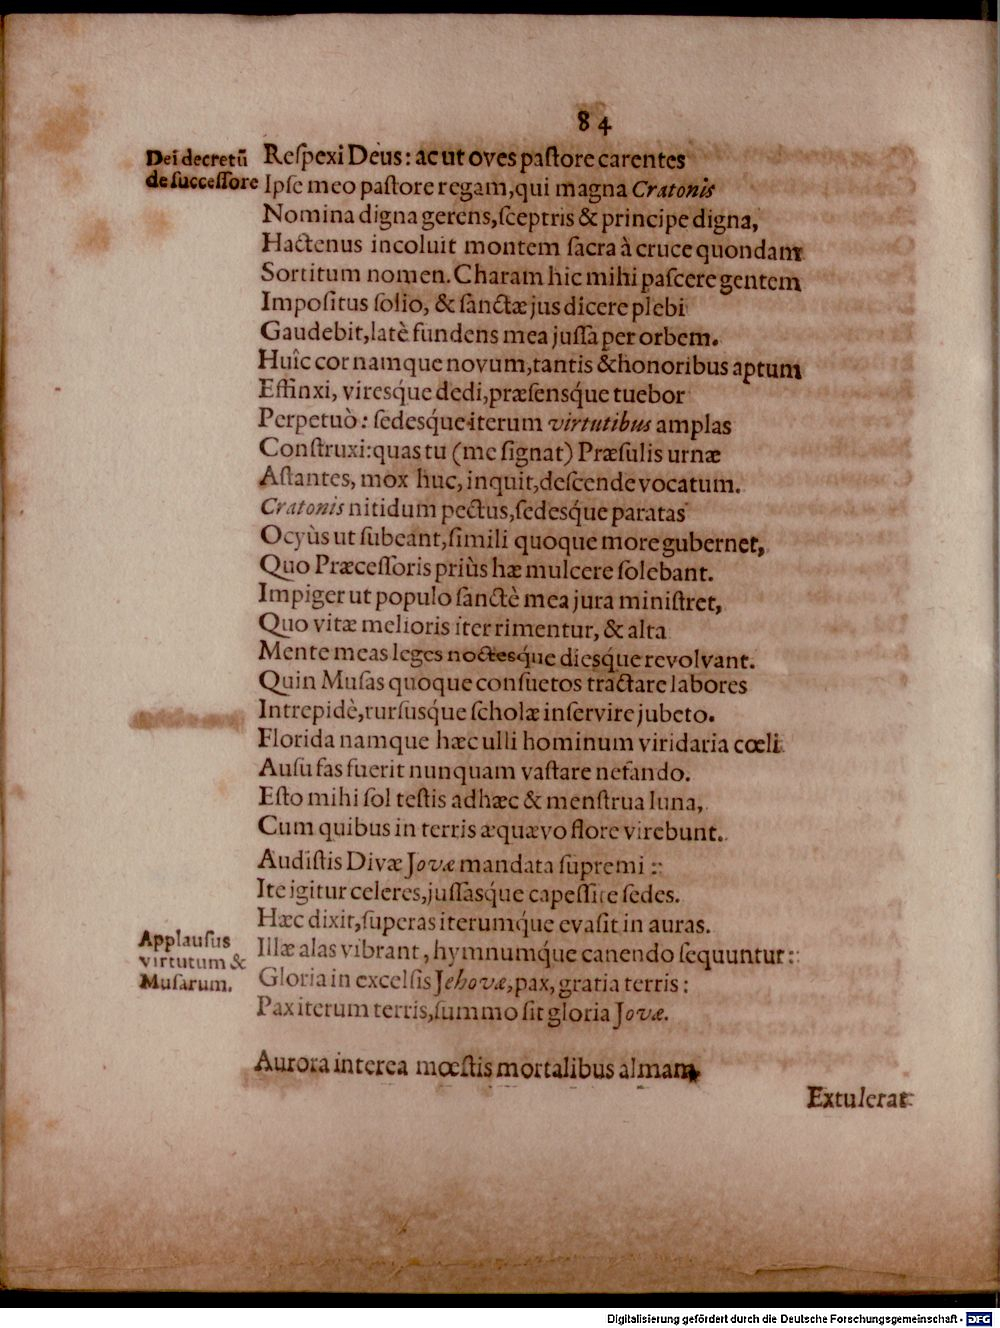 84
Dei decretū
de successore
Reſpexi Deus: ac ut oves paſtore carentes
Ipſe meo paſtore regam, qui magna Cratonis
Nomina digna gerens, ſceptris & principe digna,
Hactenus incoluit montem ſacra à cruce quondam
Sortitum nomen. Charam hic mihi paſcere gentem
Impoſitus ſolio, & ſanctæ jus dicere plebi
Gaudebit, latè fundens mea juſſa per orbem.
Huîc cor namque novum, tantis & honoribus aptum
Effinxi, viresq́ue dedi, præſensq́ue tuebor
Perpetuò: ſedesq́ue iterum virtutibus amplas
Conſtruxi: quas tu (me ſignat) Præſulis urnæ
Aſtantes, mox huc, inquit, deſcende vocatum.
Cratonis nitidum pectus, ſedesq́ue paratas
Ocyùs ut ſubeant, ſimili quoque more gubernet,
Quo Præceſſoris priùs hæ mulcere ſolebant.
Impiger ut populo ſanctè mea jura miniſtret,
Quo vitæ melioris iter rimentur, & alta
Mente meas leges noctesq́ue diesq́ue revolvant.
Quin Muſas quoque conſuetos tractare labores
Intrepidè, rurſusq́ue ſcholæ inſervire jubeto.
Florida namque hæc ulli hominum viridaria cœli
Auſu fas fuerit nunquam vaſtare nefando.
Eſto mihi ſol teſtis ad hæc & menſtrua luna,
Cum quibus in terris æquævo flore virebunt.
Audiſtis Divæ Jovæ mandata ſupremi:
Ite igitur celeres, juſſasq́ue capeſſite ſedes.
Hæc dixit, ſuperas iterumq́ue evaſit in auras.
Applauſus
virtutum &
Muſarum.
Illæ alas vibrant, hymnumq́ue canendo ſequuntur:
Gloria in excelſis Jehovæ, pax, gratia terris:
Pax iterum terris, ſummo ſit gloria Jovæ.
Aurora interea mœſtis mortalibus almam
Extulerat
Digitalisierung gefördert durch die Deutsche Forschungsgemeinschaft - DFG